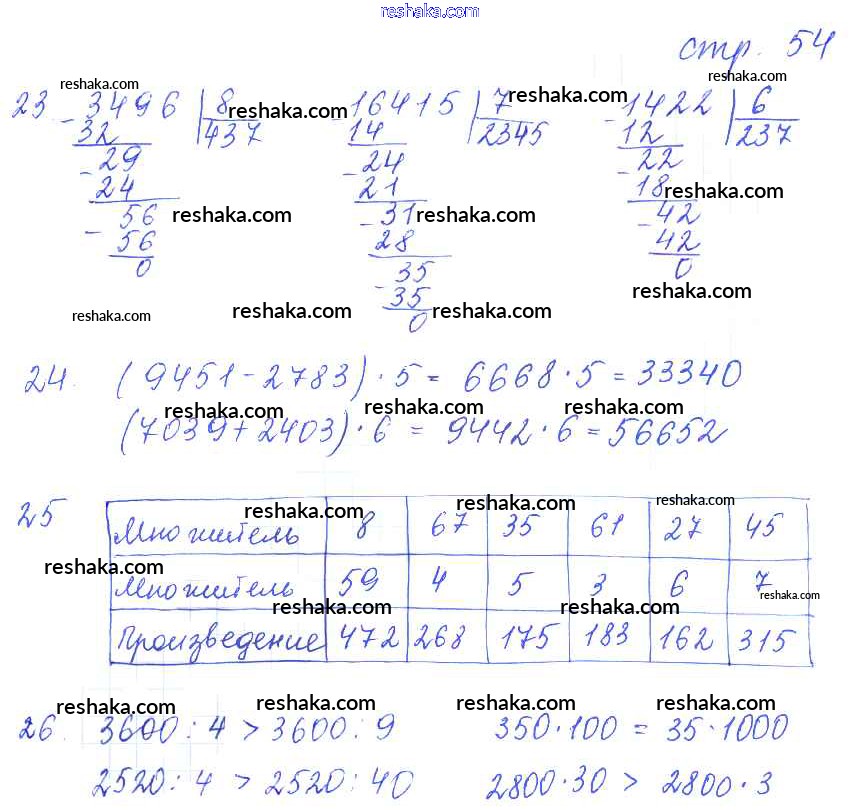 reshaka.com
стр. 54
reshaka.com reshaka.com
23. 3496 | 8 reshaka.com 16415 | 7 reshaka.com 1422 | 6
- 32 437 14 2345 - 12 237
29 - 24 - 22
- 24 21 18 reshaka.com
56 reshaka.com - 31 reshaka.com - 42
- 56 28 42
0 35 0
- 35 reshaka.com
reshaka.com reshaka.com 0 reshaka.com
24. (9451-2783)·5 = 6668·5 = 33340
reshaka.com reshaka.com reshaka.com
(7039+2403)·6 = 9442·6 = 56652
reshaka.com reshaka.com reshaka.com
25 Множитель 8 67 35 61 27 45
reshaka.com reshaka.com reshaka.com
Множитель 59 4 5 3 6 7
reshaka.com reshaka.com reshaka.com
Произведение 472 268 175 183 162 315
reshaka.com reshaka.com reshaka.com reshaka.com
26. 3600:4 > 3600:9 350·100 = 35·1000
2520:4 > 2520:40 2800·30 > 2800·3